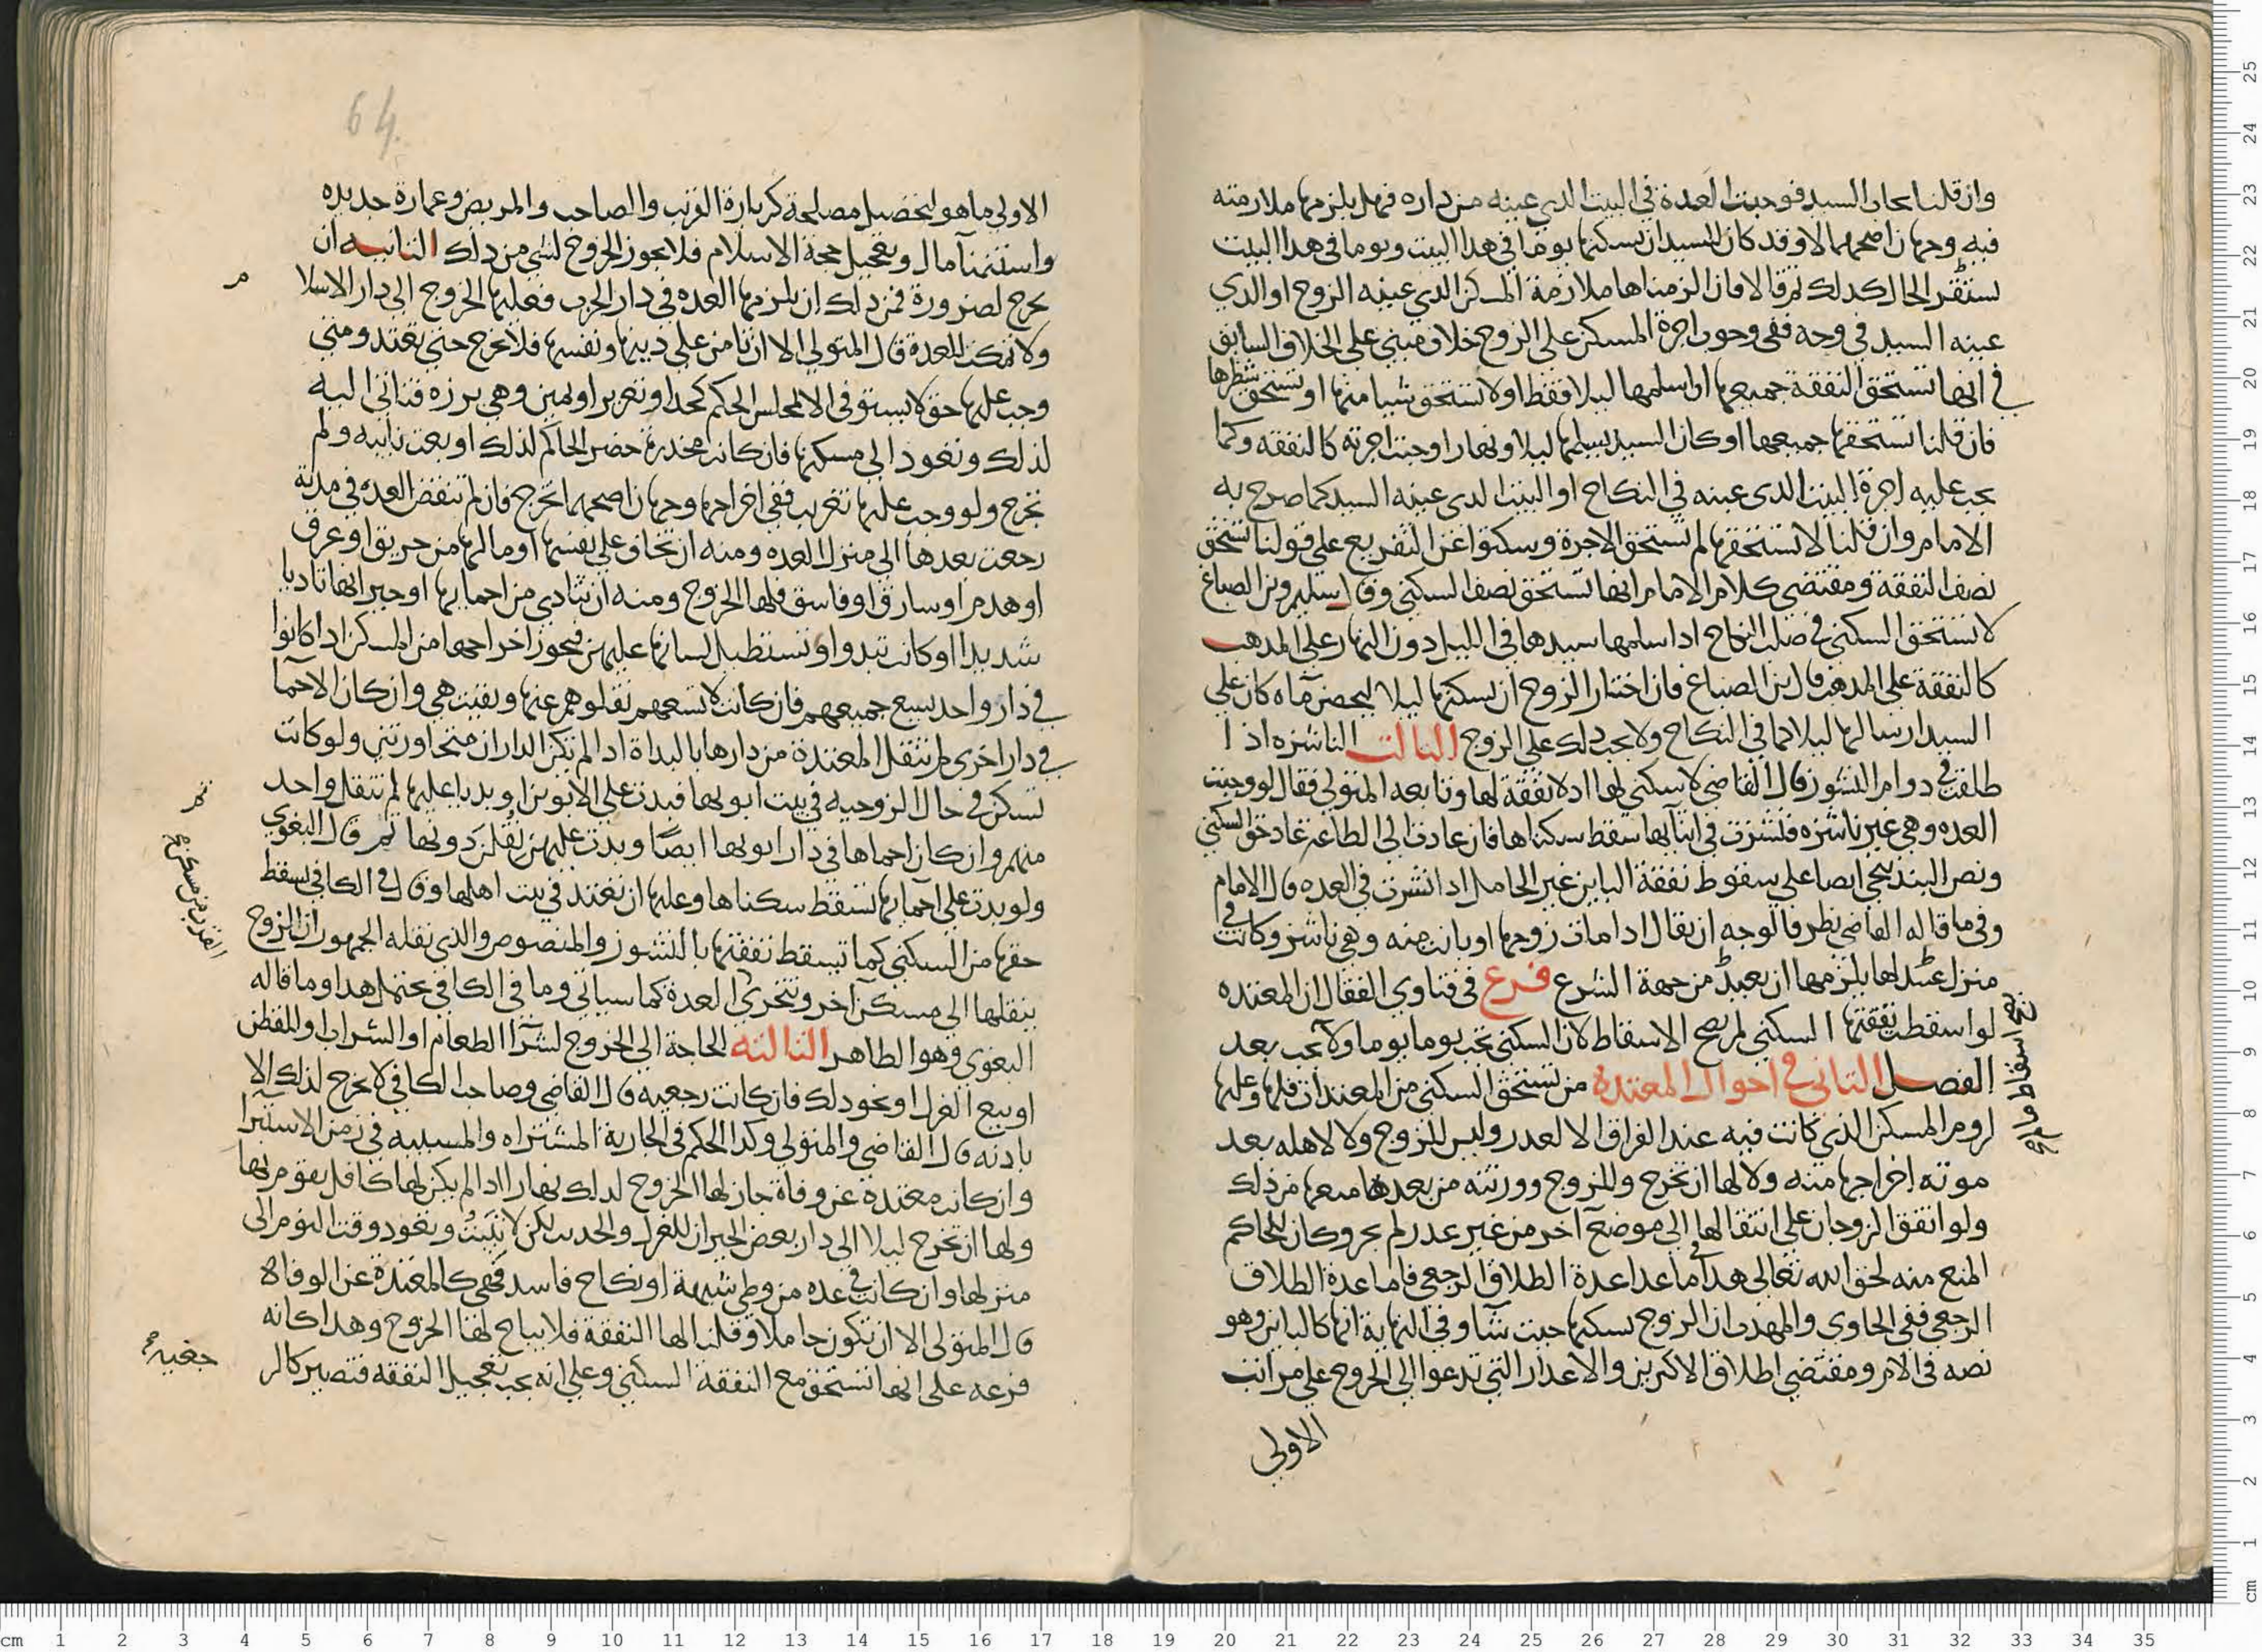 وان قلنا بحاذ السيد فوجبت العدة في البيت الدي عينه من داره فهل يلزمها ملازمته
فيه وجهان اصحهما لا وقد كان للسيد ان يسكنها يوما في هدا البيت ويوما في هدا البيت
سنقر الحال كدلك تمرقا لا فان الزمناها ملازمة المسكن الدي عينه الزوج او الذي
عينه السيد في وجه ففي وجوب اجرة المسكن على الزوج خلاف مبني على الخلاف السابق
في انها تستحق النفقة جميعها اذا سلمها ليلا فقط او لا تستحق شيا منها او تستحق شطرها
فان قلنا تستحقها جميعها او كان السيد يسلمها ليلا ونهارا وجبت اجرته كالنفقه وكما
يجب عليه اجرة البيت الدي عينه في النكاح او البيت الدي عينه السيد كما صرح به
الامام وان قلنا لا تستحقها لم تستحق الاجرة وسكتوا عن التفريع على قولنا تستحق
نصف النفقة ومقتضى كلام الامام انها تستحق نصف السكنى وقال سليم وبن الصباغ
لا تستحق السكنى في صلب النكاح اذا سلمها سيدها في الليل دون النهار على المدهب
كالنفقة على المدهب قال بن الصباغ فان اختار الزوج ان يسكنها ليلا ليحصن ماه كان على
السيد ارسالها ليلا كما في النكاح ولا يجب دلك على الزوج الثالث الناشزه اذا
طلقت في دوام النشوز قال القاضي لا سكنى لها اد لا نفقة لها وتابعه المتولي فقال لو وجبت
العده وهي غير ناشزه فنشزت في اثنايها سقط سكناها فان عادت الى الطاعة عاد حق السكنى
ونص البندنيجي ايضا على سقوط نفقة الباين غير الحامل اذا نشزت في العده قال الامام
وفي ما قاله القاضي نظر فالوجه ان يقال ادا مات زوجها او بانت منه وهي ناشز وكانت في
منزل عند لها يلزمها ان تعتد من جهة الشرع فرع في فتاوي القفال ان المعتده
لو اسقطت نفقتها السكنى لم يصح الاسقاط لان السكنى تجب يوما يوما ولا تجب بعد
الفصل الثاني في احوال المعتدة من تستحق السكنى من المعتدات فلها وعليها
لزوم المسكن الذي كانت فيه عند الفراق الا لعدر وليس للزوج ولا لاهله بعد
موته اخراجها منه ولا لها ان تخرج وللزوج وورثته من بعده منعها من دلك
ولو اتفق الزوجان على انتقالها الى موضع آخر من غير عدر لم يجز وكان للحاكم
المنع منه لحق الله تعالى هدا في ما عدا عدة الطلاق الرجعي فاما عدة الطلاق
الرجعي ففي الحاوي والمهدب ان الزوج يسكنها حيث شآ وفي النهاية انها كالباين وهو
نصه في الام ومقتضى اطلاق الاكثرين والاعدار التي تدعوا الى الخروج على مراتب
الاولى
64
الاولى ما هو لتحصيل مصلحة كزيارة القريب والصاحب والمريض وعمارة جديده
واستنمآ مال وتعجيل حجة الاسلام فلا يجوز الخروج لشي من دلك الثانيه ان
يخرج لضرورة فمن دلك ان يلزمها العده في دار الحرب فعليها الخروج الى دار الاسلا
م
ولا تمكث للعدة قال المتولي الا ان تامن على دينها ونفسها فلا تخرج حتى تعتد ومتى
وجب عليها حق لا يستوفى الا بمجلس الحكم كحد او تعزير او يمين وهي برزه فتاتي اليه
لذلك وتعود الى مسكنها فان كانت مخدرة حضر الحاكم لذلك او بعث نايبه ولم
تخرج ولو وجب عليها تغريب ففي اخراجها وجهان اصحهما تخرج فان لم تنقض العده في مدته
رجعت بعدها الى منزل العده ومنه ان تخاف على نفسها او مالها من حريق او غرق
او هدم او سارق او فاسق فلها الخروج ومنه ان تتادى من احمايها او جيرانها تاديا
شديدا او كانت تبدوا وتستطيل لسانها عليهم فيجوز اخراجها من المسكن ادا كانوا
في دار واحد يسع جميعهم فان كانت لا تسعهم نقلوا هم عنها وبقيت هي وان كان الاحما
في دار اخرى لم تنتقل المعتدة من دارها بالبداة ادا لم تكن الداران متجاورتين ولو كانت
تسكن في حال الزوجيه في بيت ابويها فبدت على الابوين او بديا عليها لم تنتقل واحد
منهم وان كان احماها في دار ابويها ايضا وبدت عليهم نقلن دونها ثم قال البغوي
ولو بدت على احمايها تسقط سكناها وعليها ان تعتد في بيت اهلها وقال في الكافي يسقط
حقها من السكنى كما تسقط نفقتها بالنشوز والمنصوص والذي نقله الجمهور ان الزوج
ينقلها الى مسكن اخر ويتحرى العدة كما سياتي وما في الكافي يحتمل هدا وما قاله
البغوي وهو الظاهر الثالثه الحاجة الى الخروج لشرآ الطعام او الشراب او القطن
او بيع الغزل او نحو دلك فان كانت رجعيه قال القاضي وصاحب الكافي لا تخرج لدلك الا
بادنه قال القاضي والمتولي وكدا الحكم في الجارية المشتراه والمسبيه في زمن الاستبرا
وان كانت معتدة عن وفاة جاز لها الخروج لدلك نهارا ادا لم يكن لها كافل يقوم بها
ولها ان تخرج ليلا الى دار بعض الجيران للغزل والحديث لكن لا تبيت وتعود وقت النوم الى
منزلها وان كانت في عده من وطي شبهة او نكاح فاسد فهي كالمعتدة عن الوفاة
قال المتولي الا ان تكون حاملا وقلنا لها النفقة فلا يباح لها الخروج وهدا كانه
فرعه على انها تستحق مع النفقة السكنى وعلى انه يجب تعجيل النفقه فتصير كالر
جعيه صح